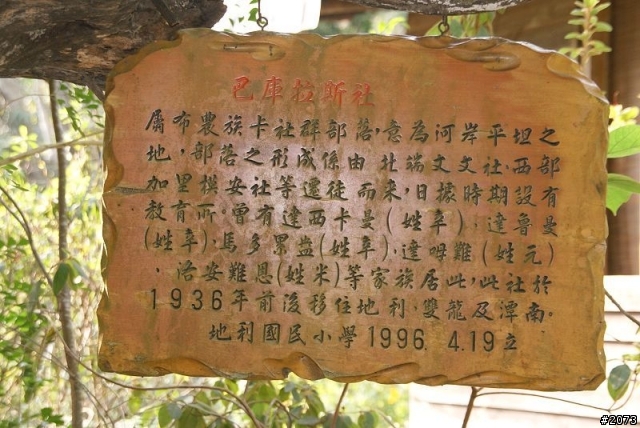 巴庫拉斯社
屬布農族卡社群部落,意為河岸平坦之
地,部落之形成係由北端文文社.西部
加里摸安社等遷徒而來,日據時期設有
教育所.曾有達西卡曼(姓辛),達魯曼
(姓辛).馬多累盎(姓辛).達姆難(姓元)
.洛安難恩(姓米)等家族居此,此社於
1936年前後移住地利.雙龍及潭南。
地利國民小學1996. 4.19立
#2073